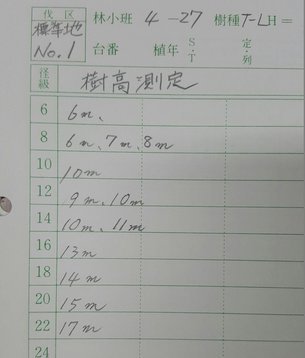 伐区 林小班 4-27 樹種 T-L H=
標準地
No.1 台番 植年 S・T 定・列
径級 樹高測定
6 6m、
8 6m、7m、8m
10 10m
12 9m、10m
14 10m、11m
16 13m
18 14m
20 15m
22 17m